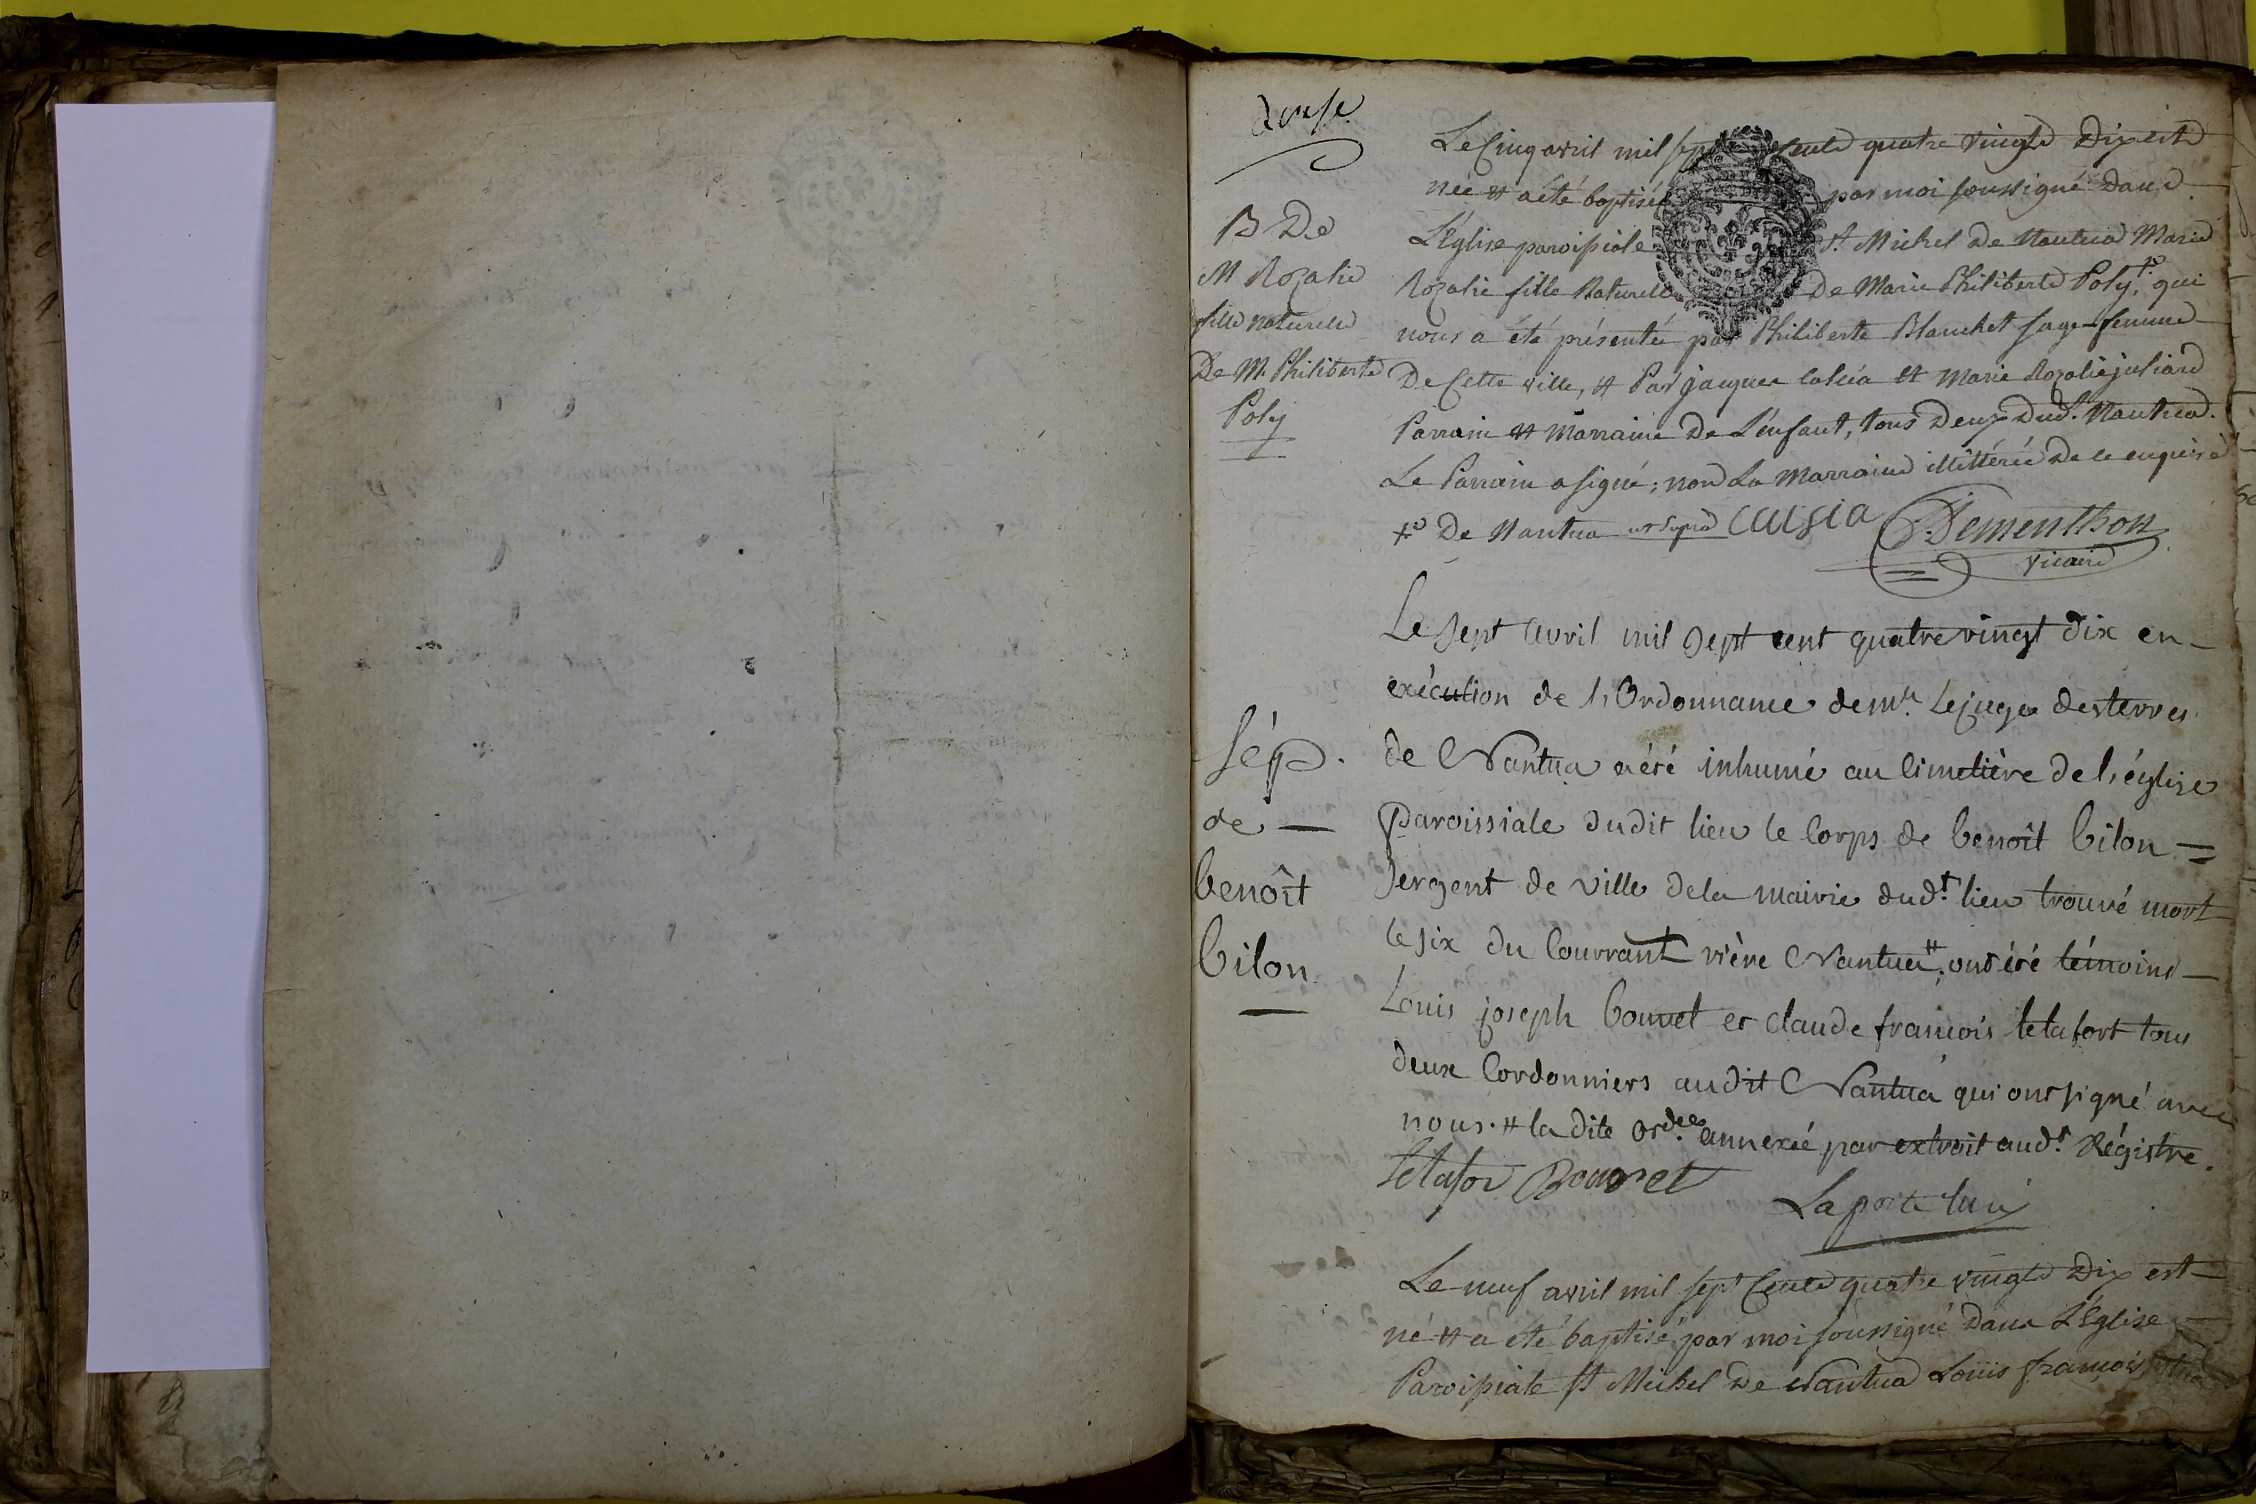 douse
Le Cinq avril mil sept cents quatre vingts Dix est
née et a été baptisée par moi soussigné dans
L'église paroissiale St. Michel de Nantua Marie
Rozalie fille Naturelle De Marie Philiberte Poly, +° qui
nous a été présentée par Philiberte Blanchet sage-femme
De Cette ville, et Par jacques et Marie Rozalie juliard
Parrain et Marraine De L'enfant, tous Deux Dud. Nantua.
Le Parrain a signé; non La Marraine illittérée De ce enquise
+° De Nantua ut supra Dementhon
vicaire
B De
M Rozalie
fille naturelle
De M. Philiberte
Poly
Le sept avril mil sept cent quatre vingt dix en-
exécution de l'Ordonnance de Mr. Le juge des terres
de Nantua a été inhumé au Cimetière de l'église
Paroissiale dudit lieu le Corps de benoît bilon =
sergent de ville de la mairie dud.t lieu trouvé mort
le six du Courrant rière Nantua #, ont été témoins
Louis joseph bouvet et claude francois letafort tous
deux Cordonniers audit Nantua qui ont signé avec
nous. # la dite ord.ce annexée par extrait aud.t Régistre.
letafor Bouvet
Laporte curé
Sép.
de —
benoît
bilon
Le neuf avril mil sept Cents quatre vingts Dix est
né et a été baptisé par moi soussigné Dans L'Église
Paroissiale St Michel De Nantua Louis françois